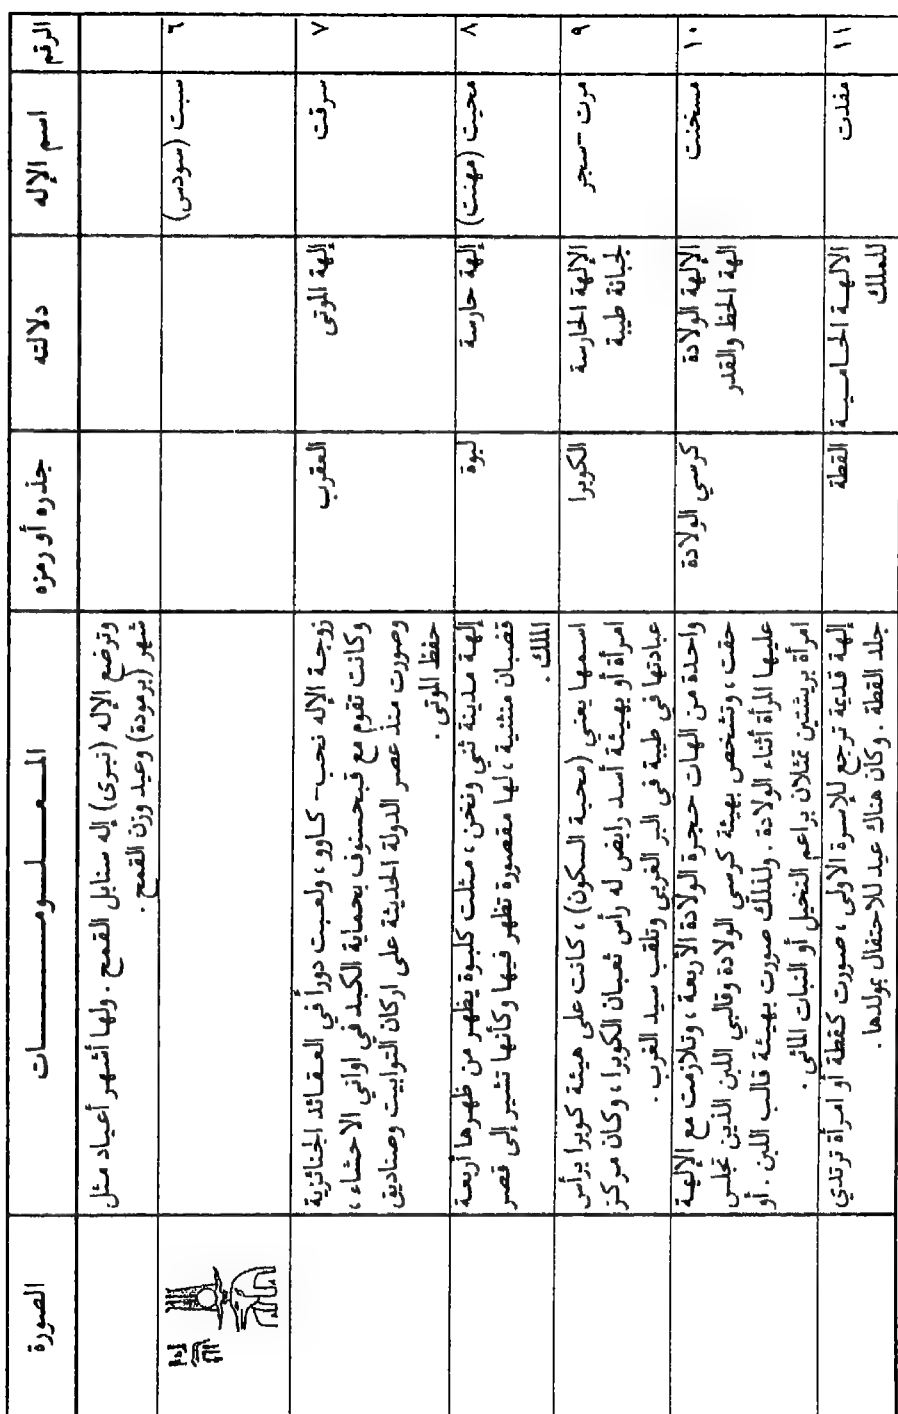 الرقم
اسم الإله
دلالته
جذره أو رمزه
المعلومات
الصورة
وترضع الإله (نبرى) إله سنابل القمح. ولها أشهر أعياد مثل
شهر (برمودة) وعيد وزن القمح.
٦
سبت (سودس)
٧
سرقت
إلهة الموتى
العقرب
زوجة الإله نحب - كاوو، ولعبت دوراً في العقائد الجنائزية
وكانت تقوم مع قبحسنوف بحماية الكبد في اواني الاحشاء،
وصورت منذ عصر الدولة الحديثة على اركان التوابيت وصناديق
حفظ الموتى.
٨
محيت (مهنت)
إلهة حارسة
لبوة
إلهة مدينة ثني ونخن، مثلت كلبوة يظهر من ظهرها أربعة
قضبان منثنية، لها مقصورة تظهر فيها وكأنها تشير إلى قصر
الملك.
٩
مرت - سجر
الإلهة الحارسة
لجبانة طيبة
الكوبرا
اسمها يعني (محبة السكون)، كانت على هيئة كوبرا برأس
امرأة أو بهيئة أسد رابض له رأس ثعبان الكوبرا، وكان مركز
عبادتها في طيبة في البر الغربي وتلقب سيد الغرب.
١٠
مسخنت
الإلهة الولادة
الهة الحظ والقدر
كرسي الولادة
واحدة من الهات حجرة الولادة الأربعة، وتلازمت مع الإلهة
حقت، وتشخص بهيئة كرسي الولادة وقالبي اللبن الذين تجلس
عليها المرأة أثناء الولادة. ولذلك صورت بهيئة قالب اللبن. أو
امرأة بريشتين تمثلان براعم النخيل أو النبات المائي.
١١
مفدت
الالهة الحامية
للملك
القطة
إلهة قديمة ترجع للإسرة الاولى، صورت كقطة أو امرأة ترتدي
جلد القطة. وكان هناك عيد للاحتفال بمولدها.